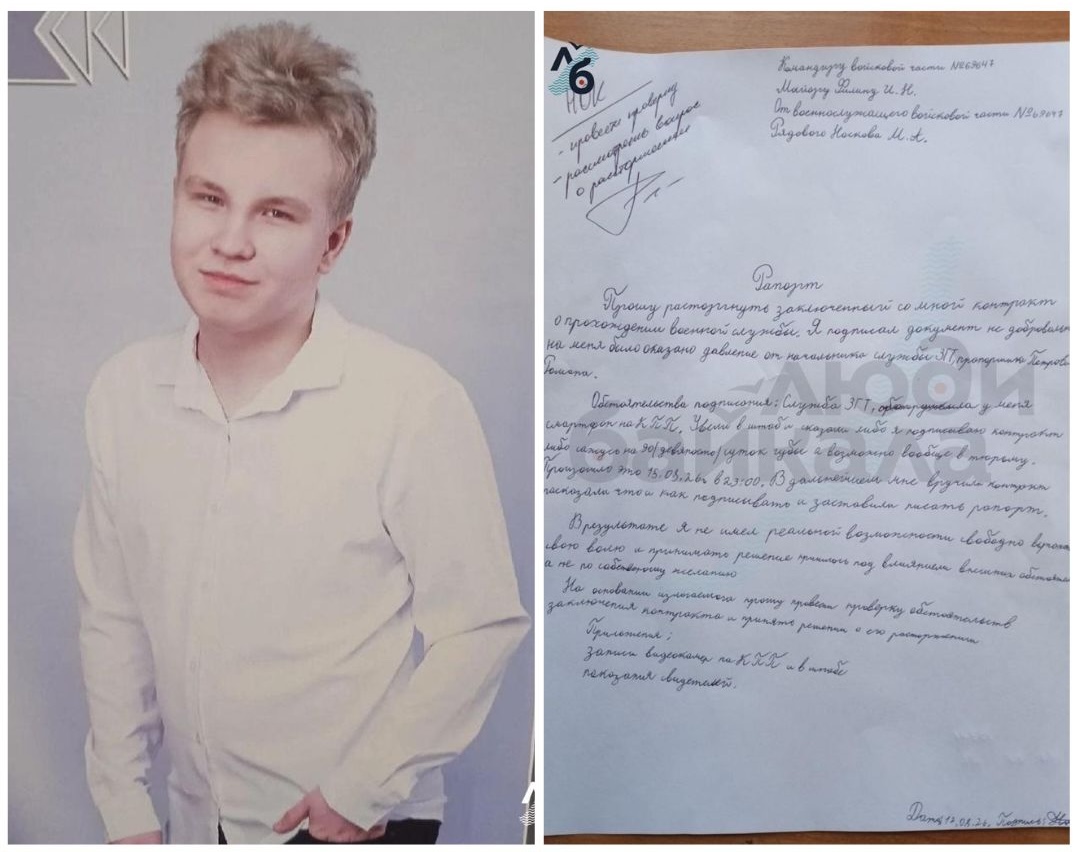 Командиру войсковой части №69647
Майору Филину И.Н.
От военнослужащего войсковой части №69647
Рядового Носкова М.А.
НОК
- провести проверку
- рассмотреть вопрос
о расторжении
Рапорт
Прошу расторгнуть заключенный со мной контракт
о прохождении военной службы. Я подписал документ не добровольн
на меня было оказано давление от начальника службы ЗГТ, прапорщика Петрова
Романа.
Обстоятельства подписания: Служба ЗГТ, обнаружила у меня
смартфон на КПП. Увели в штаб и сказали либо я подписываю контракт
либо сажусь на 90/девяносто/суток губы а возможно вообще в тюрьму.
Произошло это в 23:00. В дальнейшем мне вручили контракт
рассказали что и как подписывать и заставили писать рапорт.
В результате я не имел реальной возможности свободно
свою волю и принимать решение пришлось под влиянием внешних обстоятел
а не по собственному желанию
На основании излагаемого прошу провести проверку обстоятельств
заключения контракта и принять решение о его расторжении
Приложения:
записи видеокамер на КПП и в штабе
показания свидетелей.
Дата
люди
байкала
лб